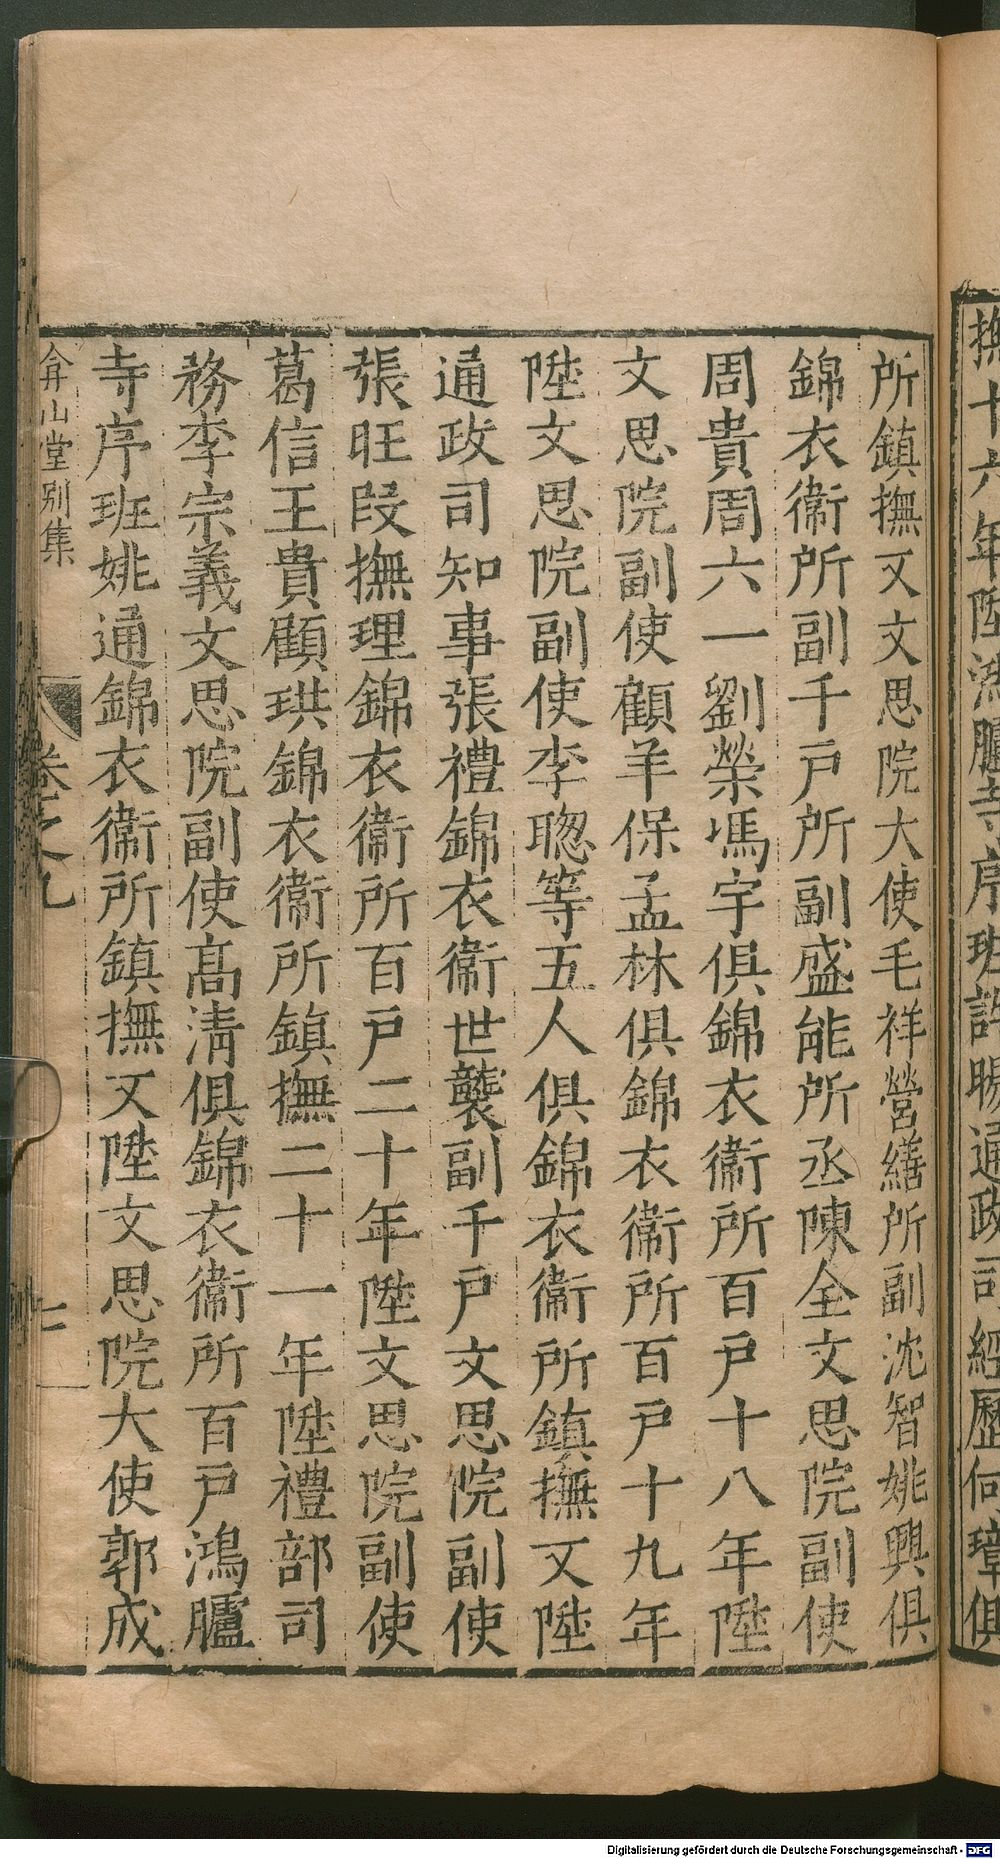 撫十六年陞鴻臚寺序班許暘通政司經歷何璋俱
所鎮撫又文思院大使毛祥營繕所副沈智姚興俱
錦衣衛所副千戶所副盛能所丞陳全文思院副使
周貴周六一劉榮馮宇俱錦衣衛所百戶十八年陞
文思院副使顧羊保孟林俱錦衣衛所百戶十九年
陞文思院副使李聦等五人俱錦衣衛所鎮撫又陞
通政司知事張禮錦衣衛世襲副千戶文思院副使
張旺叚撫理錦衣衛所百戶二十年陞文思院副使
葛信王貴顧珙錦衣衛所鎮撫二十一年陞禮部司
務李宗義文思院副使髙清俱錦衣衛所百戶鴻臚
寺序班姚通錦衣衛所鎮撫又陞文思院大使郭成
弇山堂別集
卷之九
七
Digitalisierung gefördert durch die Deutsche Forschungsgemeinschaft - DFG